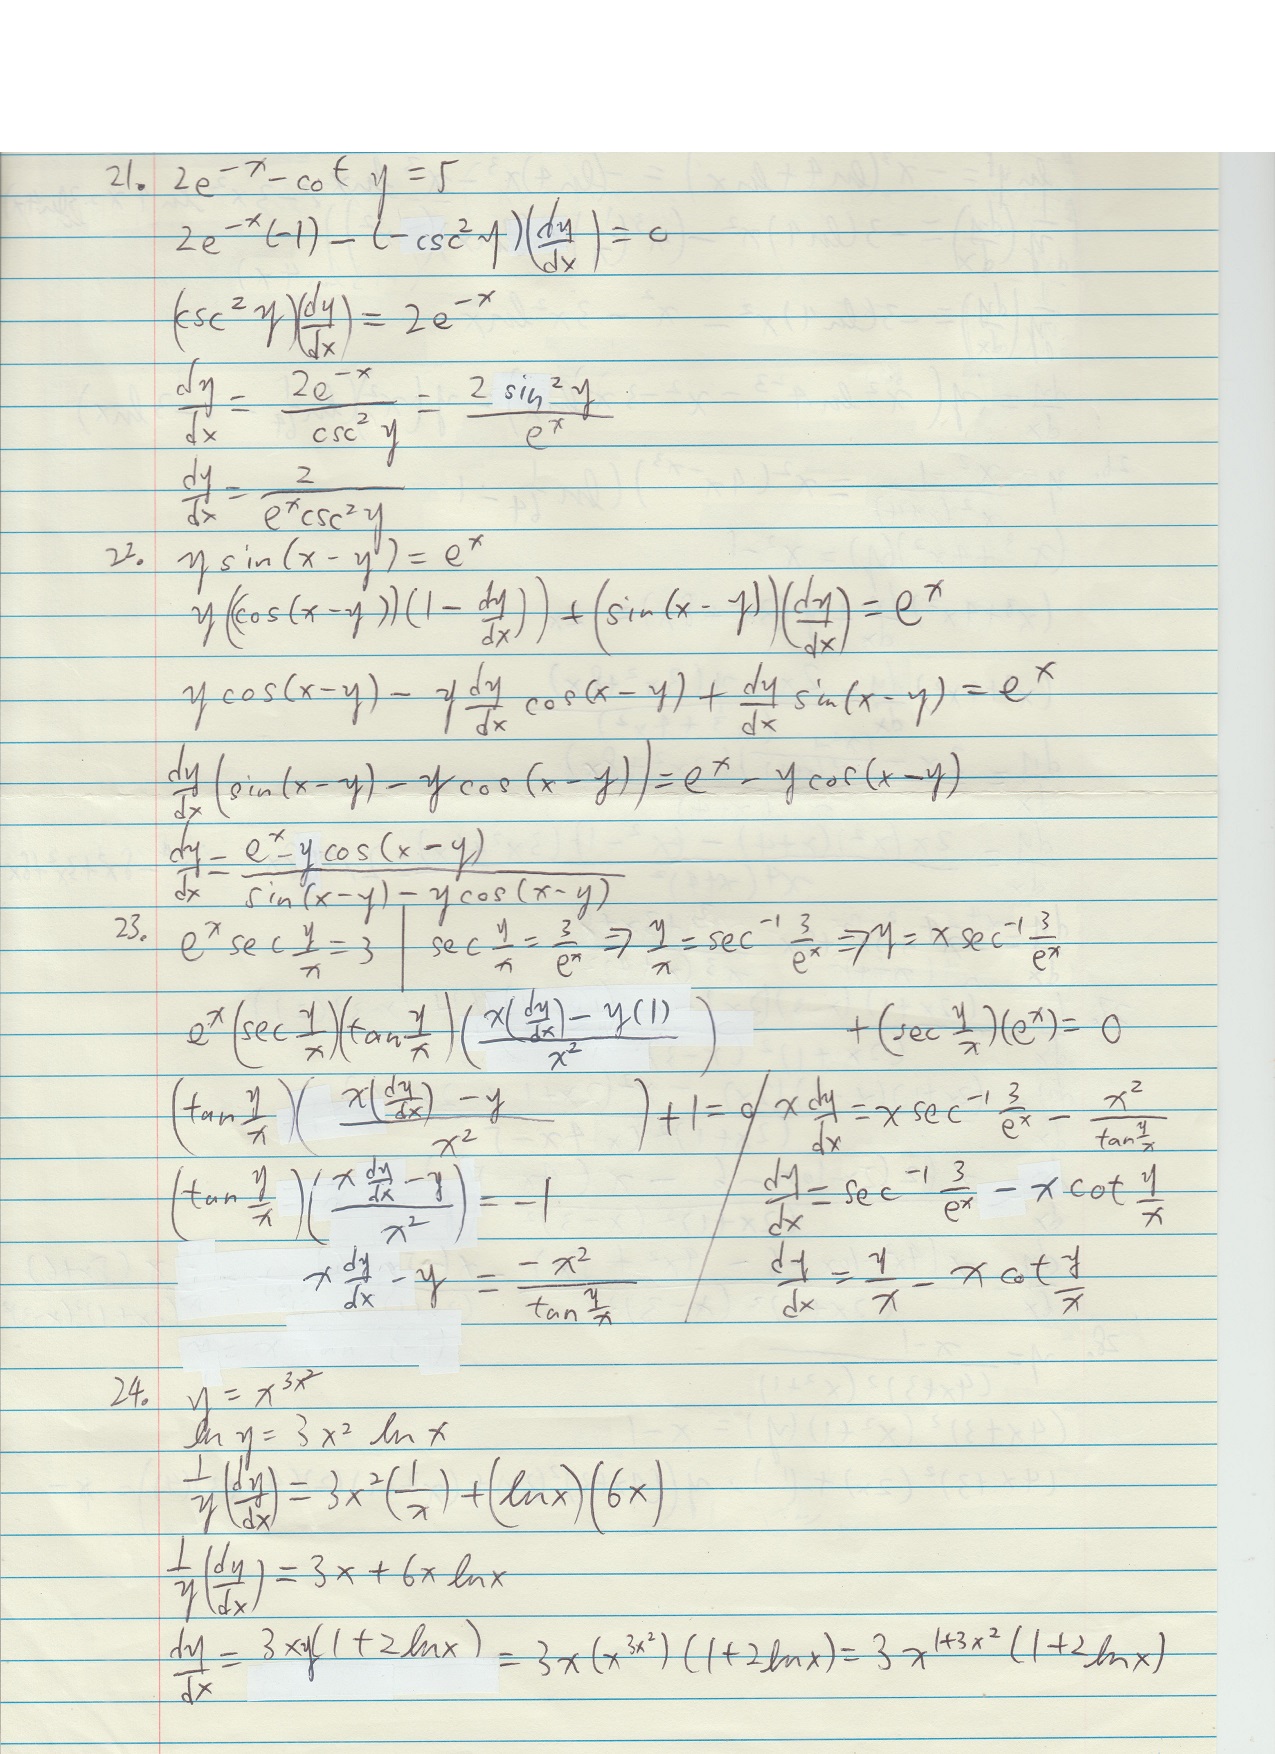 21. 2e^{-x} - cot y = 5
2e^{-x}(-1) - (-csc² y)(dy/dx) = 0
(csc² y)(dy/dx) = 2e^{-x}
dy/dx = 2e^{-x}/csc² y = 2 sin² y/e^x
dy/dx = 2/(e^x csc² y)
22. y sin(x - y) = e^x
y((cos(x-y))(1 - dy/dx)) + (sin(x - y))(dy/dx) = e^x
y cos(x-y) - y dy/dx cos(x-y) + dy/dx sin(x-y) = e^x
dy/dx (sin(x-y) - y cos(x-y)) = e^x - y cos(x-y)
dy/dx = (e^x - y cos(x-y))/(sin(x-y) - y cos(x-y))
23. e^x sec y/x = 3 | sec y/x = 3/e^x ⇒ y/x = sec^{-1} 3/e^x ⇒ y = x sec^{-1} 3/e^x
e^x (sec y/x)(tan y/x)((x(dy/dx) - y(1))/x²) + (sec y/x)(e^x) = 0
(tan y/x)((x(dy/dx) - y)/x²) + 1 = 0
(tan y/x)((x dy/dx - y)/x²) = -1
x dy/dx - y = -x²/(tan y/x)
x dy/dx = x sec^{-1} 3/e^x - x²/(tan y/x)
dy/dx = sec^{-1} 3/e^x - x cot y/x
dy/dx = y/x - x cot y/x
24. y = x^{3x²}
ln y = 3x² ln x
1/y (dy/dx) = 3x²(1/x) + (ln x)(6x)
1/y (dy/dx) = 3x + 6x ln x
dy/dx = 3xy(1+2 ln x) = 3x(x^{3x²})(1+2 ln x) = 3x^{1+3x²}(1+2 ln x)